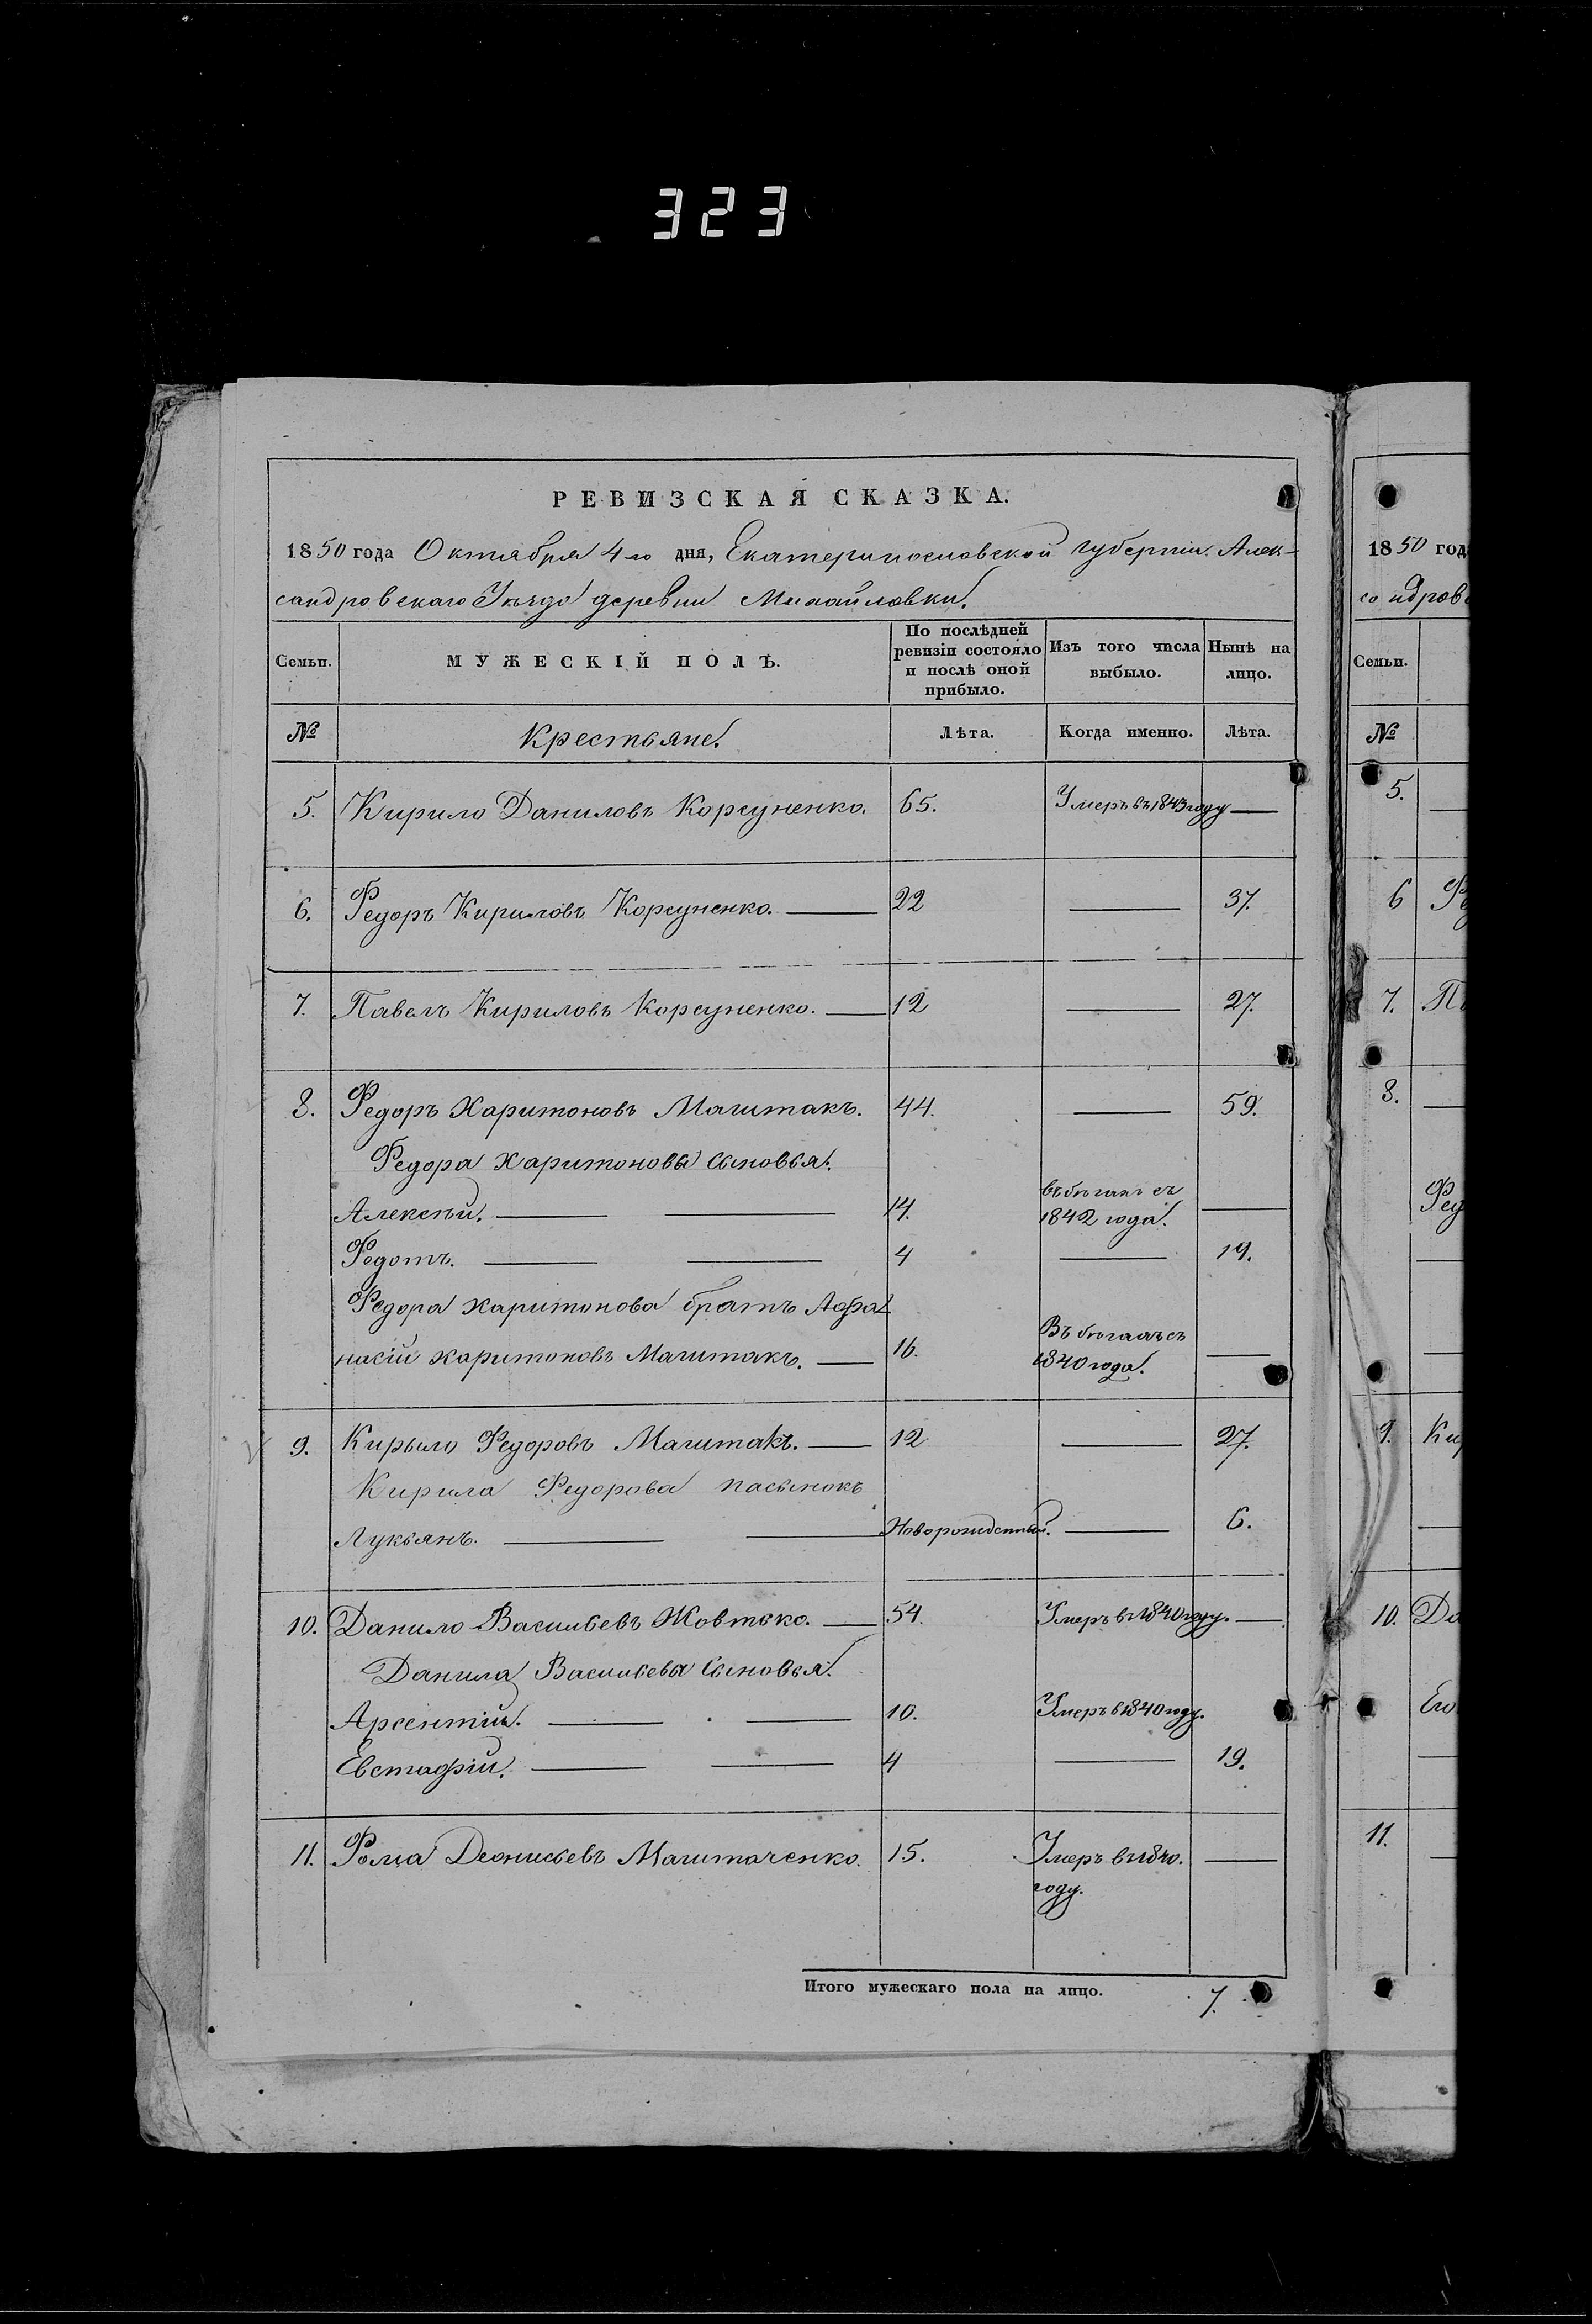 323
РЕВИЗСКАЯ СКАЗКА.
1850 года Октября 4го дня, Екатеринославской губерніи Алек-
сандровскаго Уѣзда деревни Михайловки.
Семьи. МУЖЕСКІЙ ПОЛЪ. По послѣдней ревизіи состояло и послѣ оной прибыло. Изъ того числа выбыло. Нынѣ на лицо.
№ Крестьяне. Лѣта. Когда именно. Лѣта.
5. Кирило Даниловъ Корсуненко. 65. Умеръ въ 1843 году —
6. Федоръ Кириловъ Корсуненко. — 22 — 37.
7. Павелъ Кириловъ Корсуненко. — 12 — 27.
8. Федоръ Харитоновъ Магштакъ. 44. — 59.
Федора Харитонова сыновья.
Алексѣй. — — 14. въ бѣгахъ съ 1842 года. —
Федотъ. — — 4 — 19.
Федора Харитонова братъ Афа-
насій Харитоновъ Магштакъ. — 16. Въ бѣгахъ съ 1840 года. —
9. Кирыло Федоровъ Магштакъ. — 12 — 27.
Кирила Федорова пасынокъ
Лукьянъ. — — Новорожденный. — 6.
10. Данило Васильевъ Жовтоко. — 54. Умеръ въ 1840 году. —
Данила Васильева сыновья.
Арсентій. — — 10. Умеръ въ 1840 году.
Евстафій. — — 4 — 19.
11. Фома Деонисьевъ Магштаченко. 15. Умеръ въ 1840. —
году.
Итого мужескаго пола на лицо. 7.
1850 год
№
Семьи.
5.
6
7.
8.
9.
10.
11.